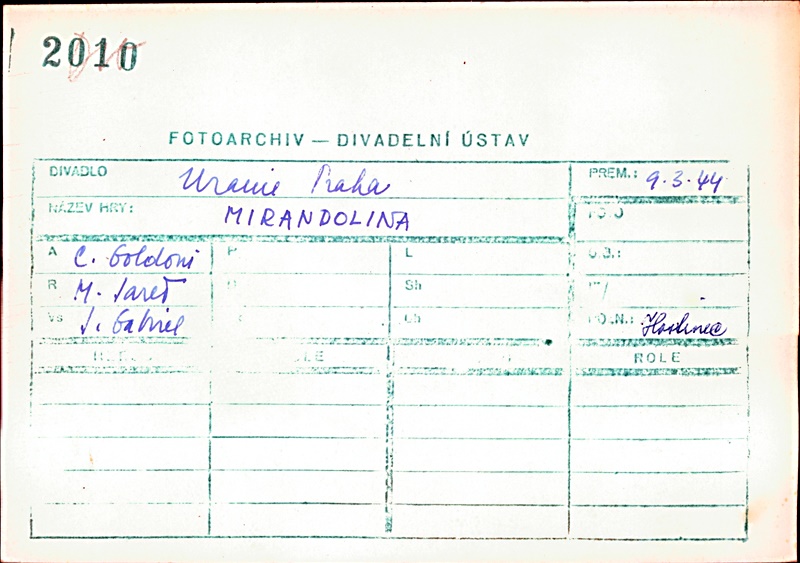 2010
FOTOARCHIV — DIVADELNÍ ÚSTAV
DIVADLO Uranie Praha PREM.: 9.3.44
NÁZEV HRY: MIRANDOLINA
A C. Goldoni P L
R M. Sh
Vs J. Gabriel
ROLE